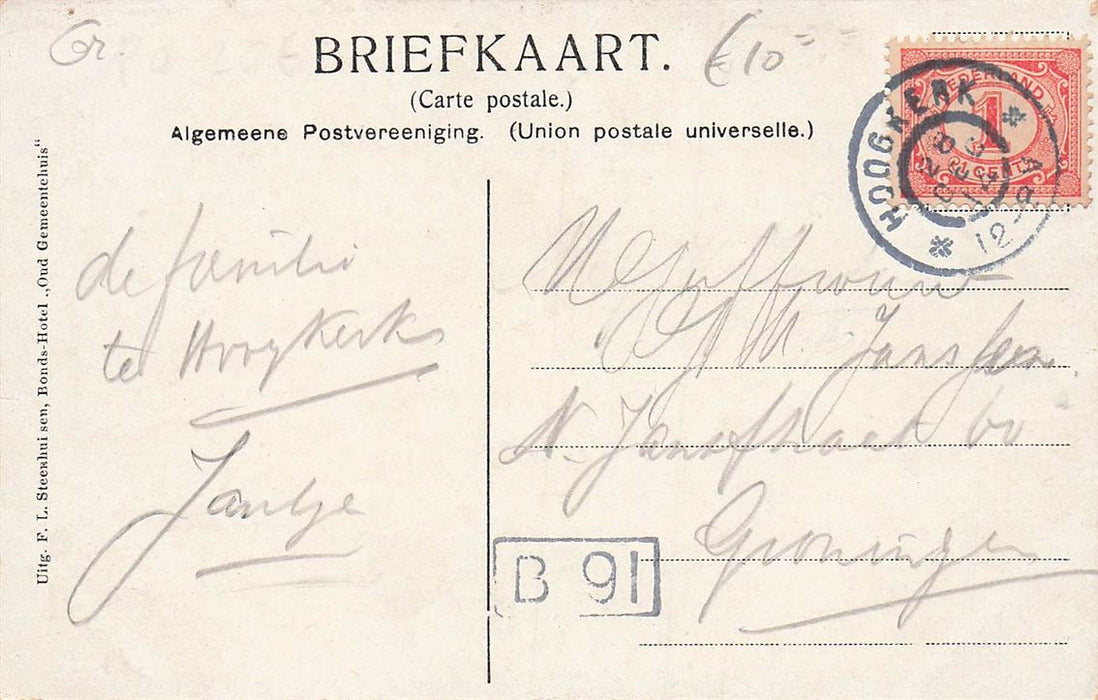 Gr.
BRIEFKAART.
€ 10=
(Carte postale.)
Algemeene Postvereeniging. (Union postale universelle.)
NEDERLAND
1
CENT
HOOGKERK
12-
Uitg. F. L. Steenhuisen, Bonds-Hotel „Oud Gemeentehuis“
de familie
te Hoogkerk
Jantje
Mejuffrouw
M. Janssen.
N. 60
Groningen
B 91